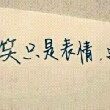 笑只是表情，